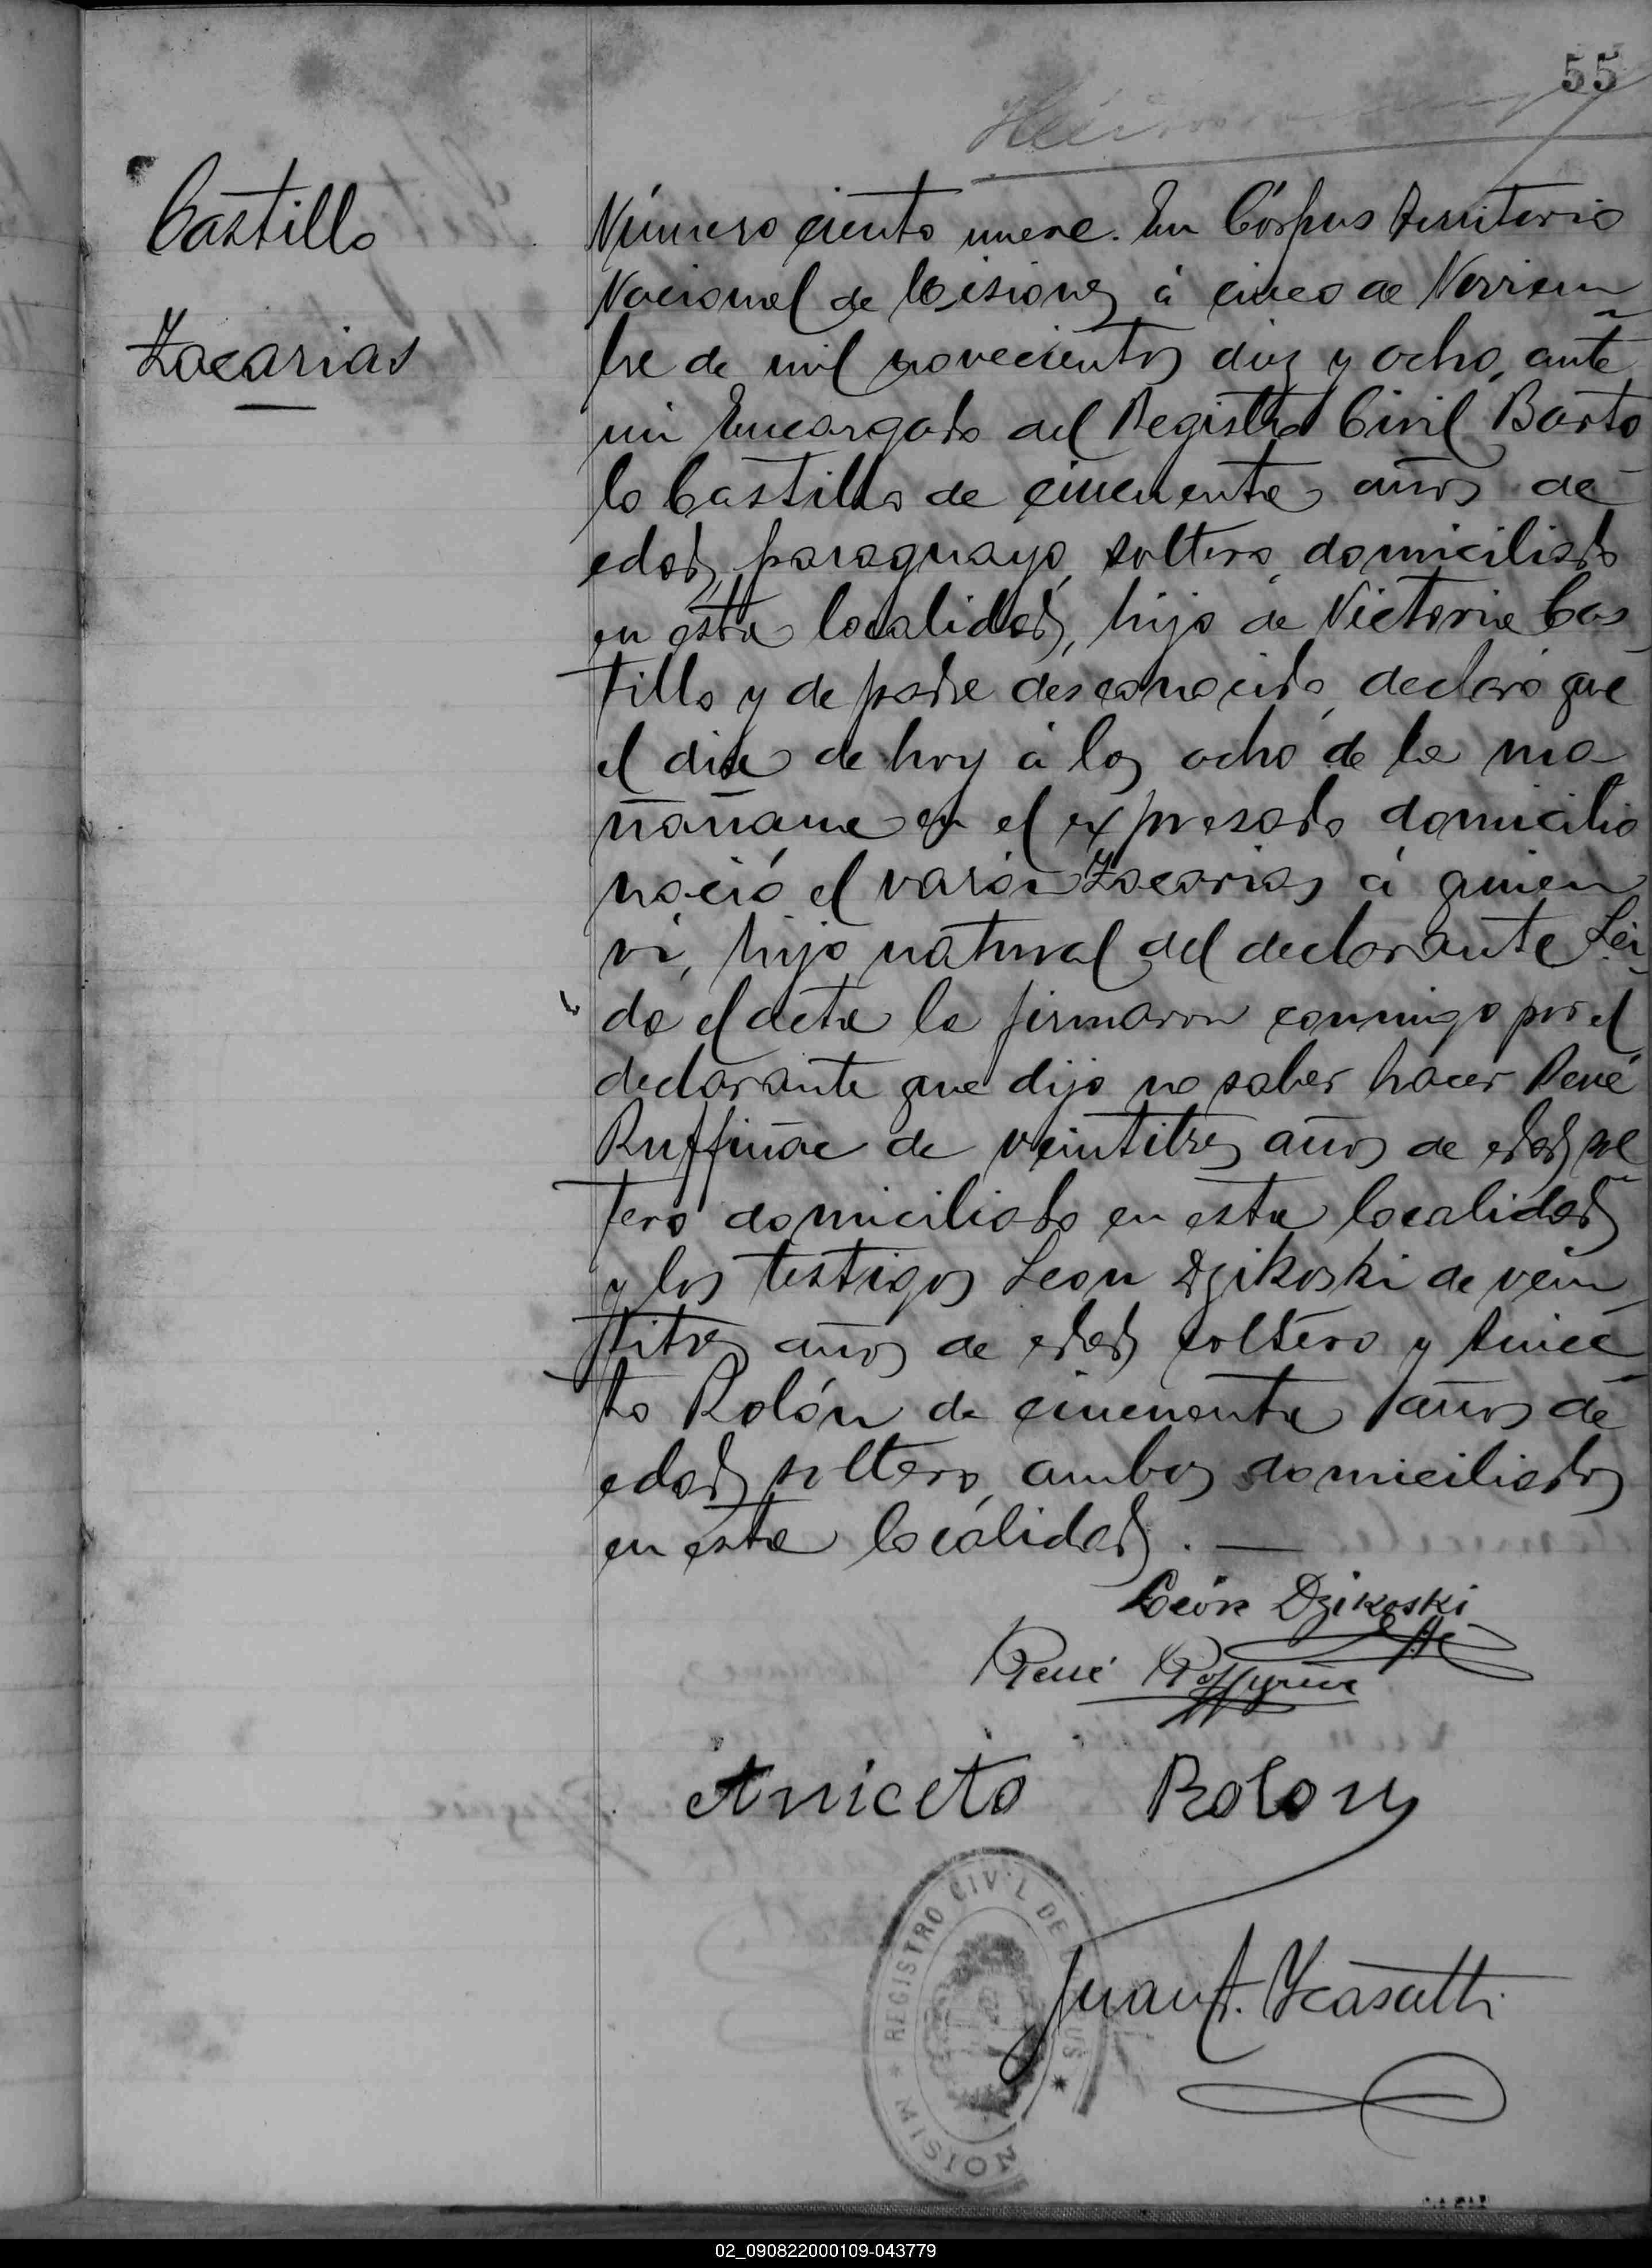 55
Castillo
Zacarias
Número ciento nueve. En Córpus Territorio
Nacional de Misiones á cinco de Noviem
bre de mil novecientos diez y ocho, ante
mi Encargado del Registro Civil Barto
lo Castillo de cincuenta años de
edad, paraguayo, soltero, domiciliado
en esta localidad, hijo de Victoria Cas
tillo y de padre desconocido, declaró que
el dia de hoy á las ocho de la ma
ñañana en el expresado domicilio
nació el varón Zacarias á quien
vi, hijo natural del declarante Lei
da el acta la firmaron conmigo por el
declarante que dijo no saber hacer René
Ruffinae de veintitres años de edad sol
tero domiciliado en esta localidad
y los testigos Leon Dzikoski de vein
titres años de edad soltero y Anice
to Rolón de cincuenta años de
edad, soltero, ambos domiciliados
en esta localidad. —
León Dzikoski
René
Aniceto Rolon
REGISTRO CIVIL DE CORPUS
MISIONES
Juan A. Ycasatti
02_090822000109-043779